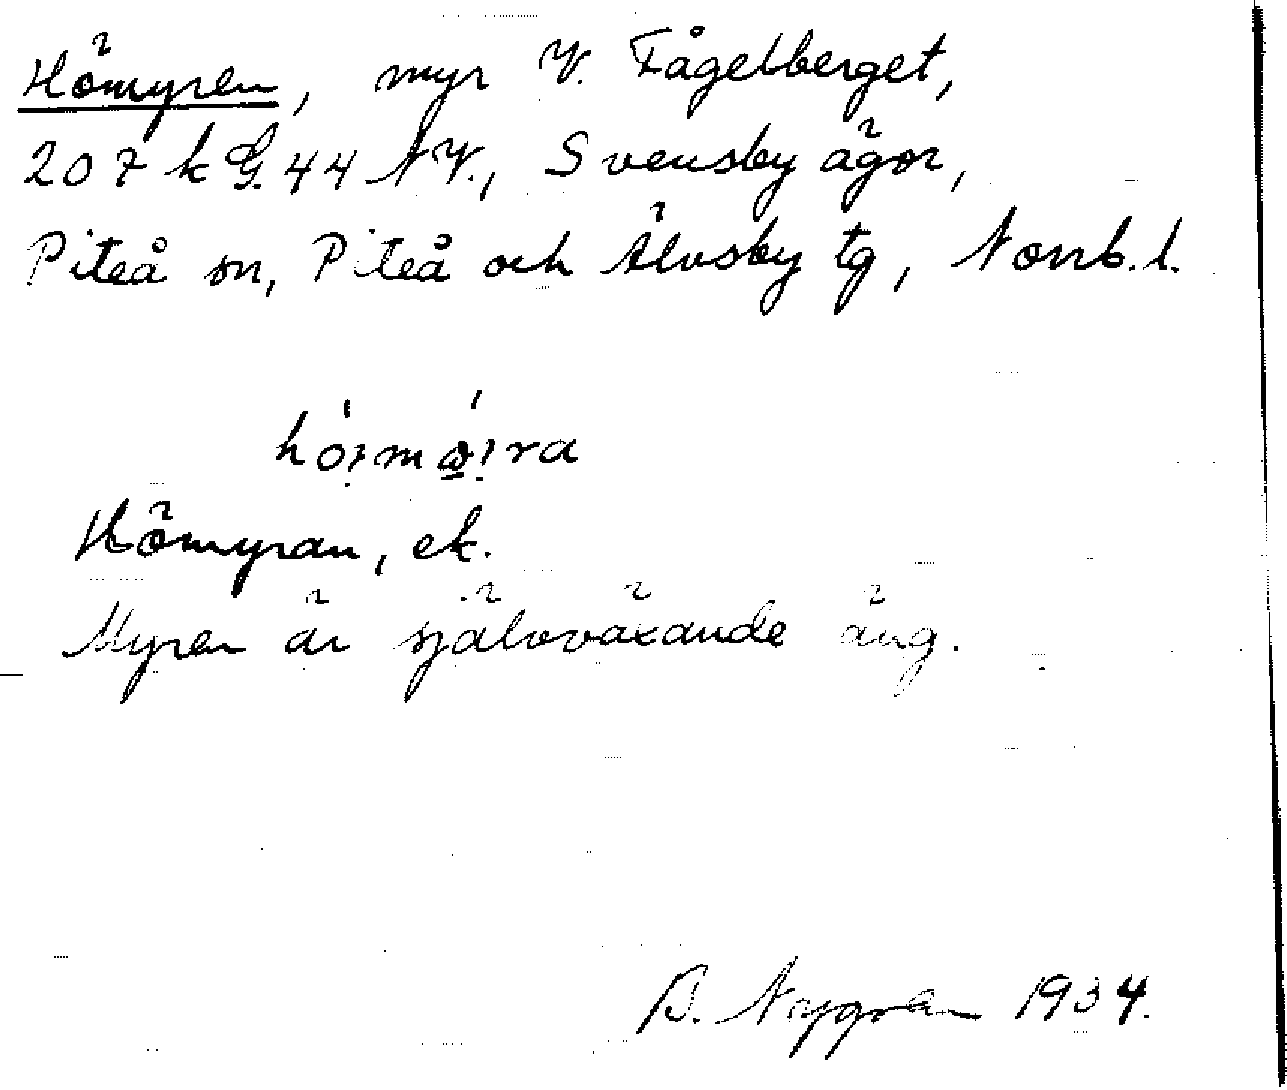 Hömyren, myr V. Fågelberget,
207 k G. 44 NV., Svensby ägor,
Piteå sn, Piteå och Älvsby tg, Norrb. l.
Hömyran, ek.
Myren är självväxande äng.
B. Nygren 1934.